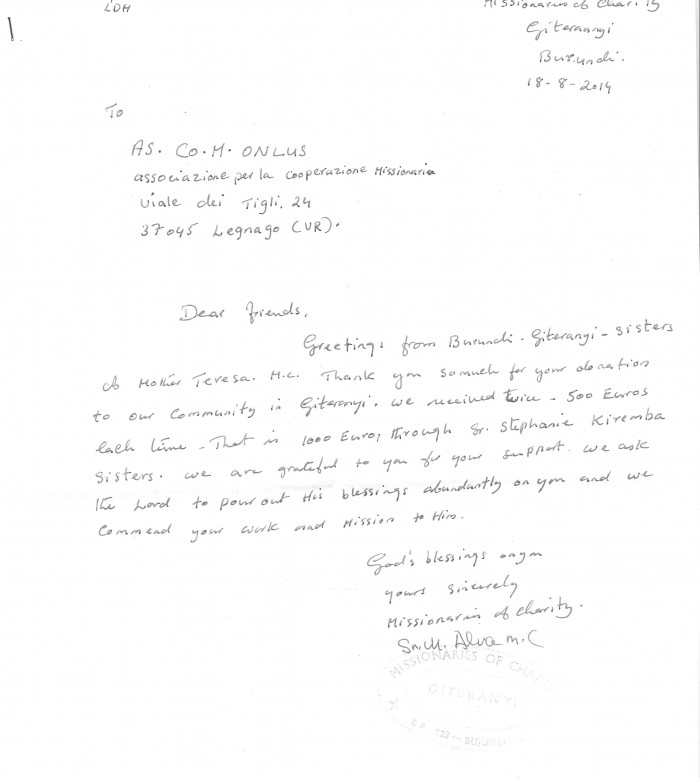 LDM
Missionaries of Charity
Giteranyi
Burundi.
18-8-2014
To
AS. CO.M. ONLUS
associazione per la cooperazione Missionaria
Viale dei Tigli, 24
37045 Legnago (VR).
Dear friends,
Greetings from Burundi - Giteranyi - Sisters
of Mother Teresa. M.C. Thank you so much for your donation
to our Community in Giteranyi. we received twice - 500 Euros
each time - That is 1000 Euro, through Sr. Stephanie Kiremba
Sisters. we are grateful to you for your support. we ask
the Lord to pour out His blessings abundantly on you and we
Commend your work and Mission to Him.
God's blessings on you
yours sincerely
Missionaries of Charity.
Sr. M. Alva M.C
MISSIONARIES OF CHARI
GITERANYI
B.P. 122 - BUJUMBU